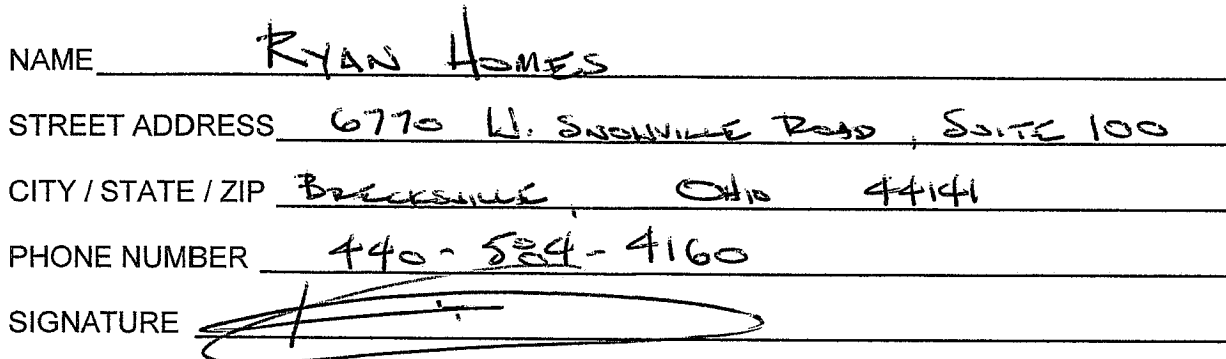 NAME RYAN HOMES
STREET ADDRESS 6770 W. SNOWVILLE ROAD, SUITE 100
CITY / STATE / ZIP BRECKSVILLE, OHIO 44141
PHONE NUMBER 440-584-4160
SIGNATURE